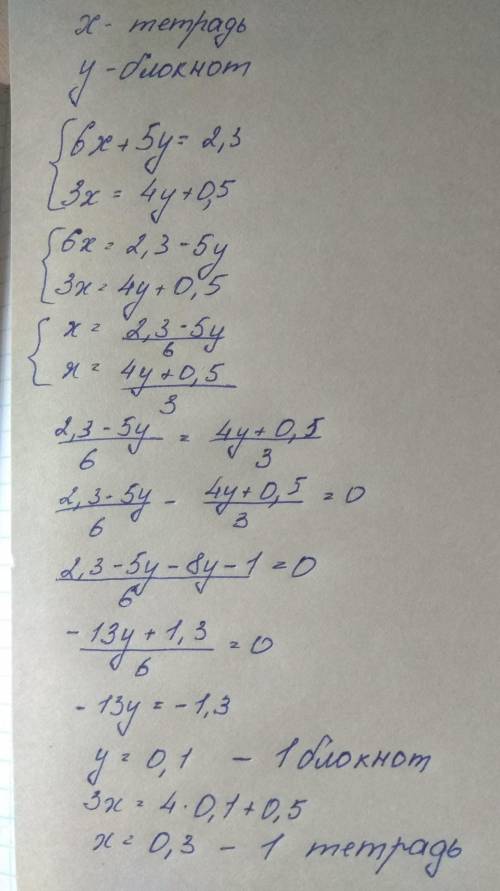 x - тетрадь
y - блокнот
{ 6x + 5y = 2,3
3x = 4y + 0,5
{ 6x = 2,3 - 5y
3x = 4y + 0,5
{ x = (2,3 - 5y)/6
x = (4y + 0,5)/3
(2,3 - 5y)/6 = (4y + 0,5)/3
(2,3 - 5y)/6 - (4y + 0,5)/3 = 0
(2,3 - 5y - 8y - 1)/6 = 0
(-13y + 1,3)/6 = 0
-13y = -1,3
y = 0,1 - 1 блокнот
3x = 4 · 0,1 + 0,5
x = 0,3 - 1 тетрадь